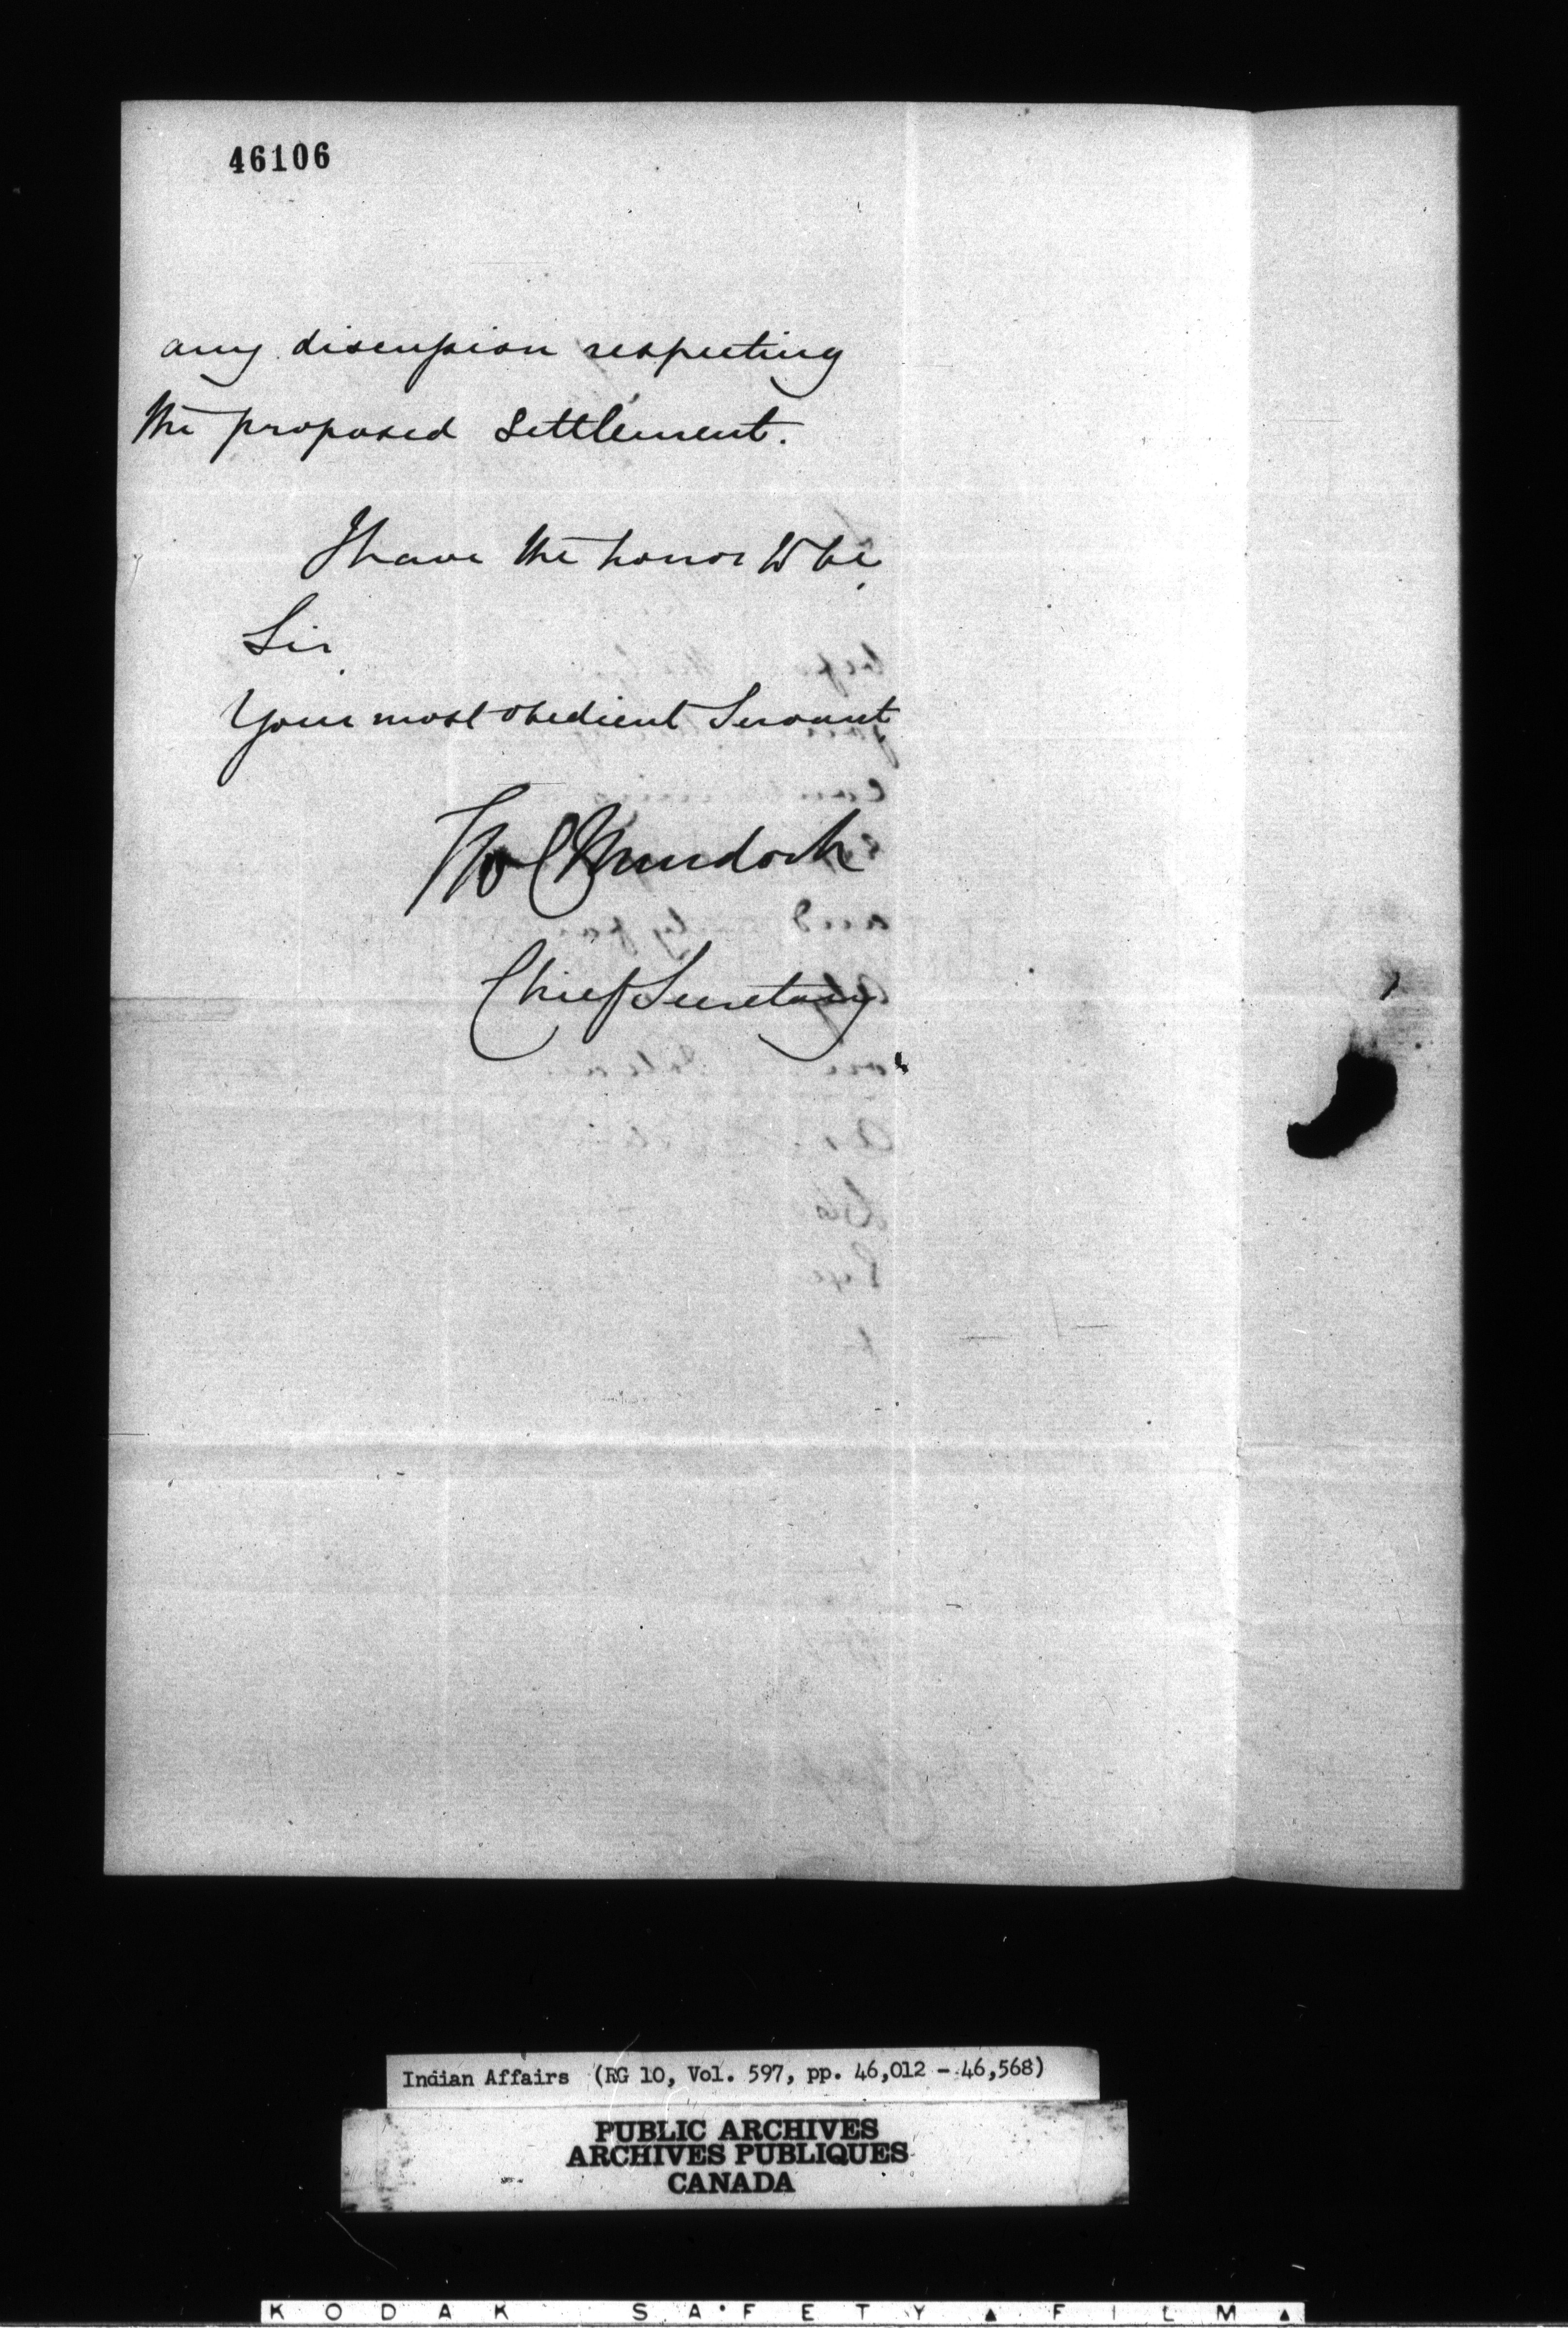 46106
any discussion respecting
the proposed Settlement.
I have the honor to be,
Sir,
Your most obedient Servant
Tho C Murdoch
Chief Secretary
Indian Affairs (RG 10, Vol. 597, pp. 46,012 - 46,568)
PUBLIC ARCHIVES
ARCHIVES PUBLIQUES
CANADA
KODAK SAFETY ▲ FILM ▲